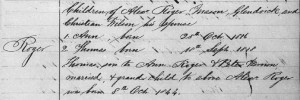 Children of Alexr Roger Mason Glendoick and
Christian Wilson his Spouse
Roger
1 Ann, born 25th Octr 1816
2 Thomas born 10th Sept. 1818
Thomas, son to Ann Roger & Peter
married, & grand child to above Alexr Roger
was born 8th Octr 1844.